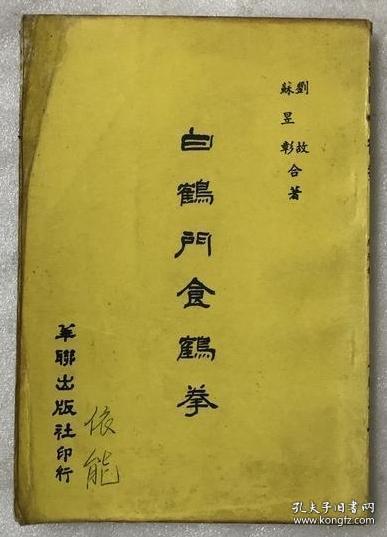 劉故
蘇昱彰合著
白鶴門食鶴拳
華聯出版社印行
依能
孔夫子旧书网
www.kongfz.com